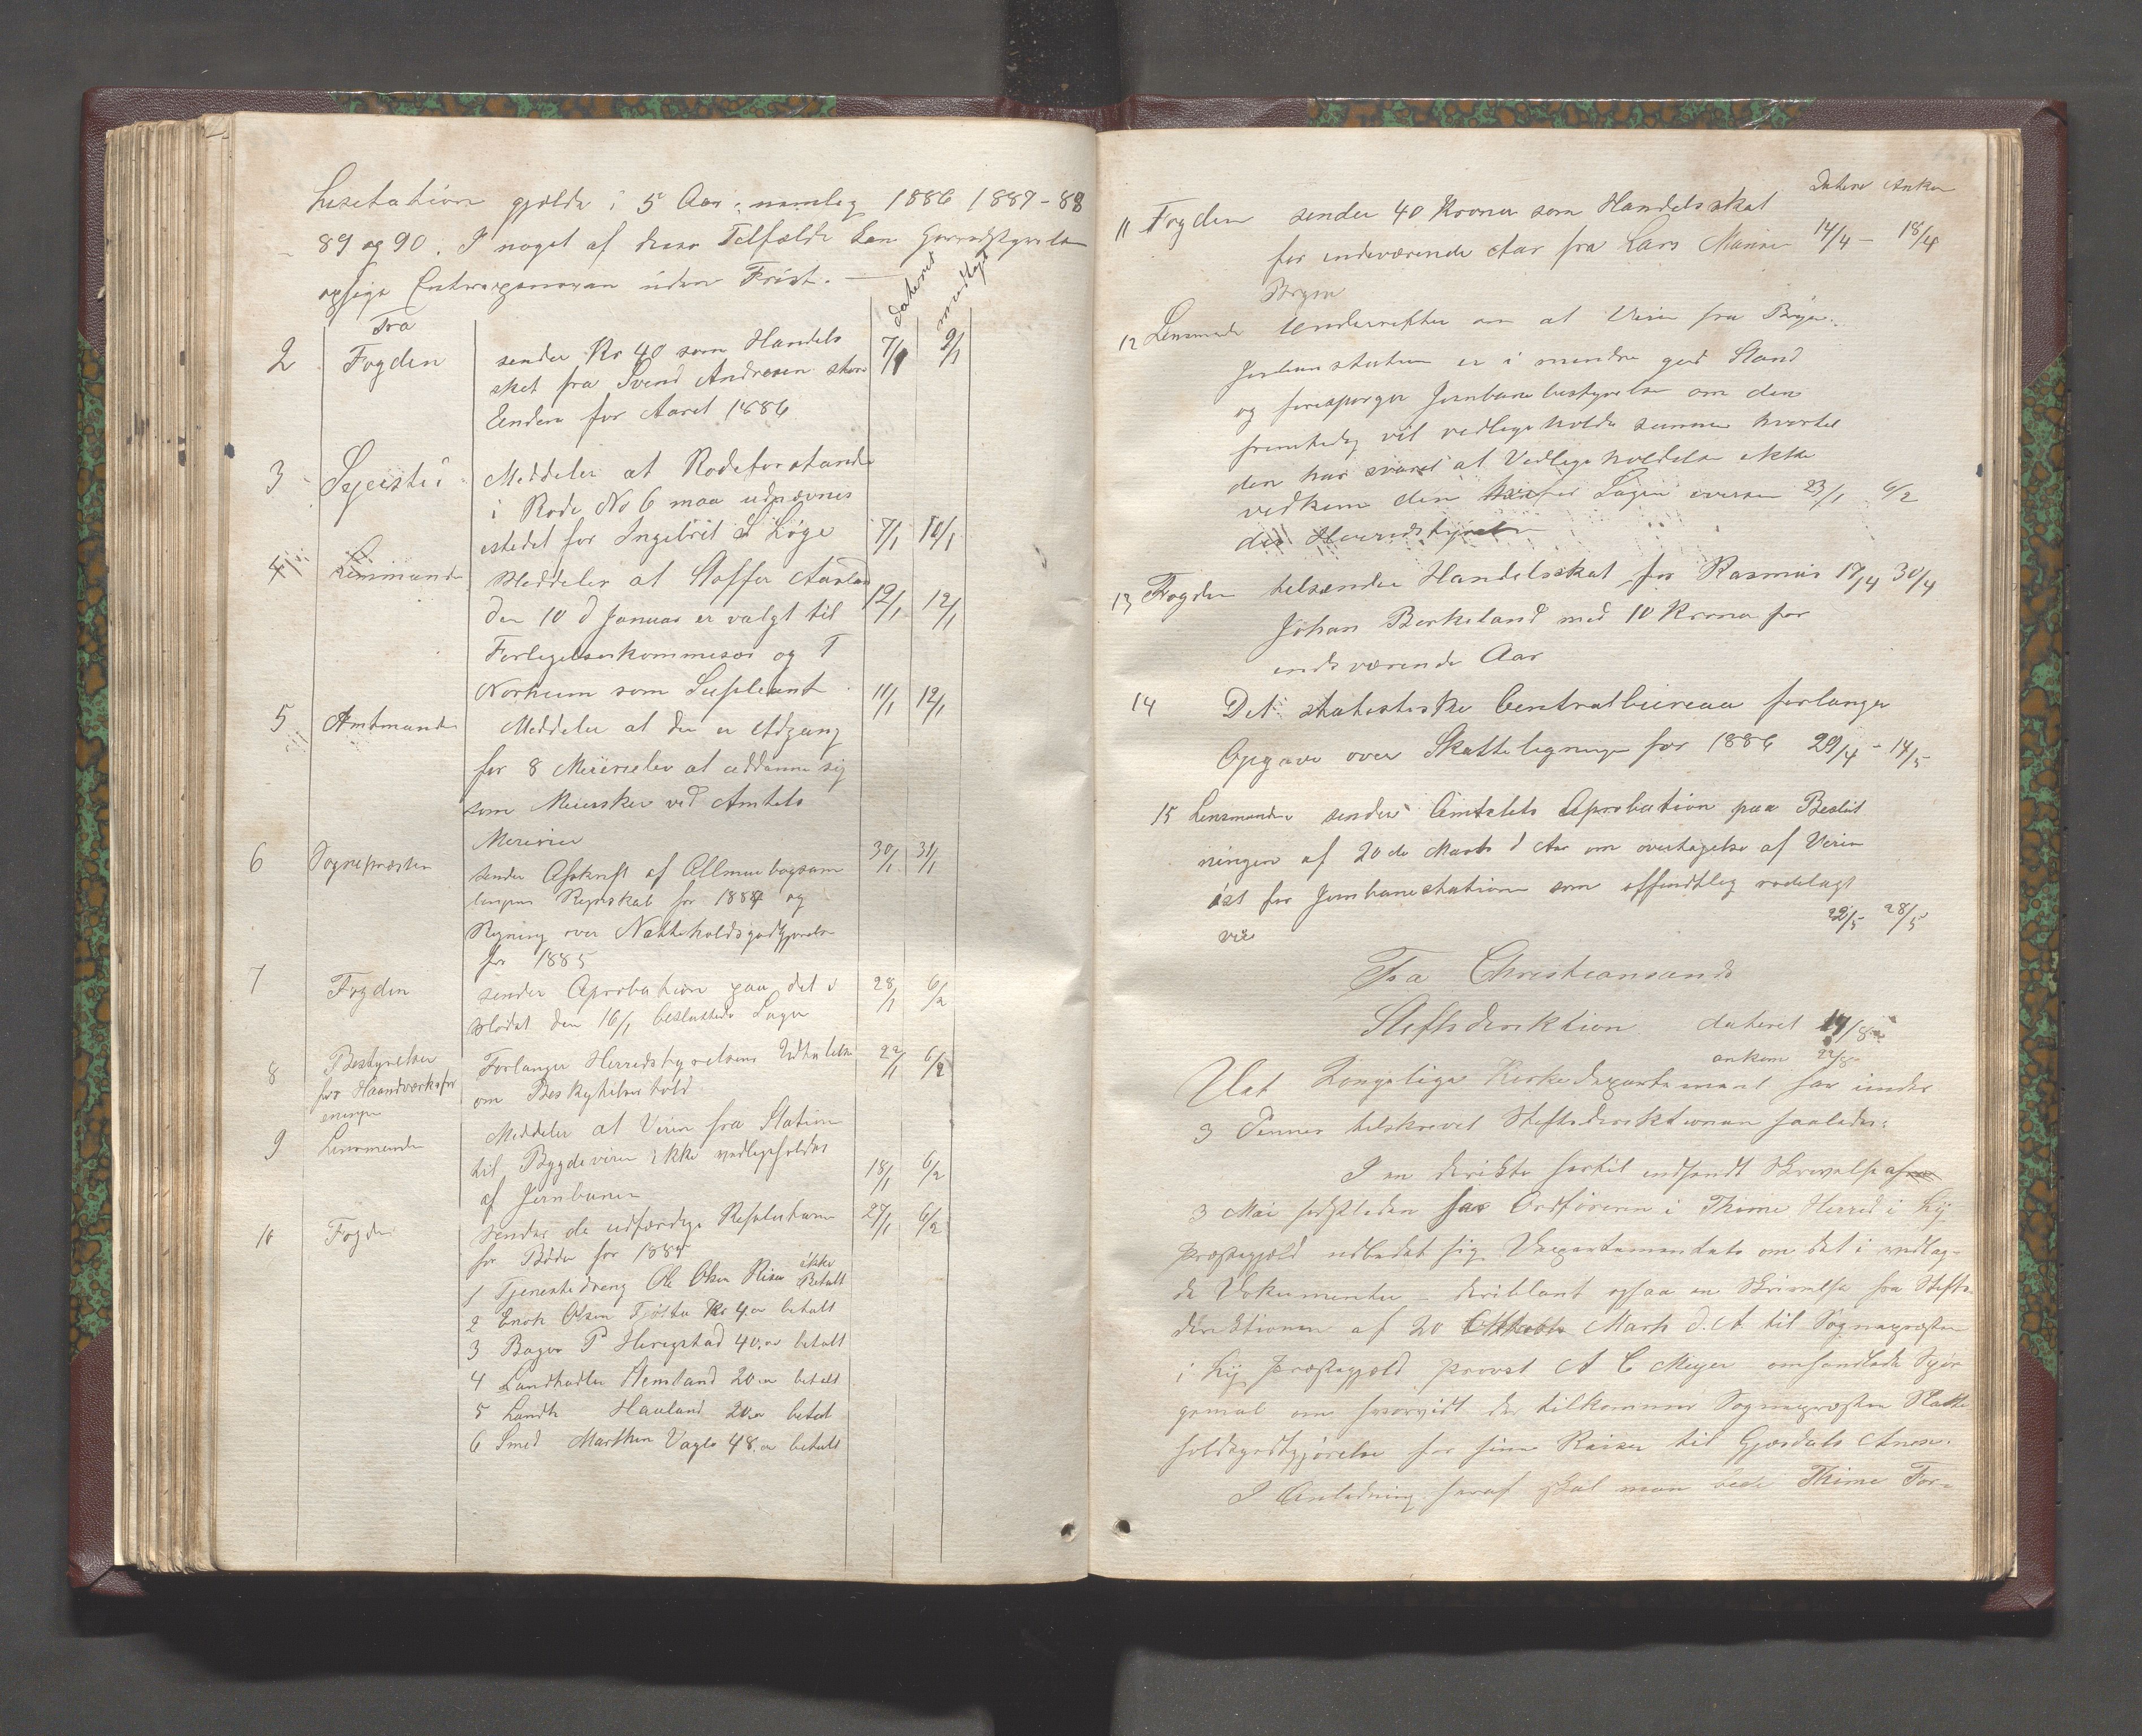 Lisitation gjælde i 5 Aar: nemlig 1886 1887-88
89 og 90. I noget af disse Tilfælde kan Herredstyrelse
opsige Entreprenøren uden Frist.
dateret modtaget
Fra
2 Fogden sender Kr 40 som Handels 7/1 9/1
skat fra Svend Andresen
Enden for Aaret 1886
3 Meddeler at Rodeforstander
i Rode No 6 maa udnævnes
istedet for Ingebrit S Høge 7/1 10/1
4 Lensmanden Meddeler at Aarland 12/1 12/1
den 10 d Januar er valgt til
Forligelseskommisær og T
Norheim som Supleant
5 Amtmanden Meddeler at der er Adgang 11/1 12/1
for 8 at uddanne sig
som Meiersker ved Amtets
Meierier
6 Sognepræsten sender Afskrift af Allmuebogsam 30/1 31/1
lingens Regnskab for 1884 og
Regning over Natteholdsgodtgjørelse
for 1885
7 Fogden sender Aprobation paa det i 28/1 6/2
Mødet den 16/1 besluttede Sager
8 Bestyrelsen Forlanger Herredstyrelsens Udtalelse 22/1 6/2
for Haandværksfor om Beskyttelsestold
eningen
9 Lensmanden Meddeler at Veien fra Station
til Bygdeveien ikke vedligeholdes 18/1 6/2
af Jernbanen
10 Fogden sender de udfærdige Resolutioner 27/1 6/2
for Bøder for 1885
1 Tjenestedreng Ole Olsen Risa ikke Betalt
2 Enok Olsen Kr 4.00 betalt
3 Bager P Herigstad 40,00 betalt
4 Landhadler Aemland 20.00 betalt
5 Landh Hauland 20.00 betalt
6 Smed Marthin Vagle 48.00 betalt
Datere Ankom
11 Fogden sender 40 Kroner som Handelsskat
for indeværende Aar fra Lars 14/4 - 18/4
Bryne
12 Lensmanden Underretter om at Veien fra Bryne
Jernbanstation er i mindre god Stand
og forespørger Jernbanebestyrelse om den
fremtidig vil vedligeholde samme hvortil
den har svaret at Vedligeholdelse ikke
vedkom den Sagen oversen 23/1 6/2
des Herredstyrelse
13 Fogden tilsender Handelsskat for Rasmus 17/4 30/4
Johan Berkeland med 10 Kroner for
indeværende Aar
14 Det statestiske Centralbureau forlanger
Opgave over Skatteligninger for 1886 29/4 - 14/5
15 Lensmanden sender Amtets Aprobation paa Beslut
ningen af 20de Marts d Aar om overtagelse af Veien
øst for Jernbanestationen som offendtlig rodelagt
vei 22/5 28/5
Fra Christiansands
Stiftsdirektion dateret 14/8
ankom 22/8
Det Kongelige Kirkedepartement har under
3 Dennes tilskrevet Stiftsdirektionen saaledes:
I en direkte hertil indsendt Skrivelse af
3 Mai sidstleden har Ordføreren i Thime Herred i Ly
Præstegjæld udbedet sig Departementets om det i vedlag-
de Dokumenter - deriblant ogsaa en Skrivelse fra Stifts-
direktionen af 20 Marts d. A. til Sognepræsten
i Ly Præstegjeld Provst A C Meyer omhandlede Spør
gsmal om hvorvidt der tilkommer Sognepræsten Natte
holdsgodtgjørelse for sine Reiser til Gjesdals Anex.
I Anledning heraf skal man bede Thime For-